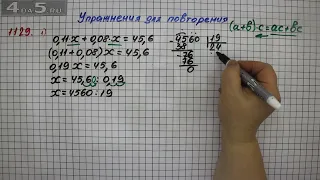 4AP5.RU
Упражнения для повторения
1129. а)
(a+b)·c=ac+bc
0,11x+0,08·x=45,6
(0,11+0,08)x=45,6
0,19x=45,6
x=45,60:0,19
x=4560:19
4560 19
38 24
76
76
0